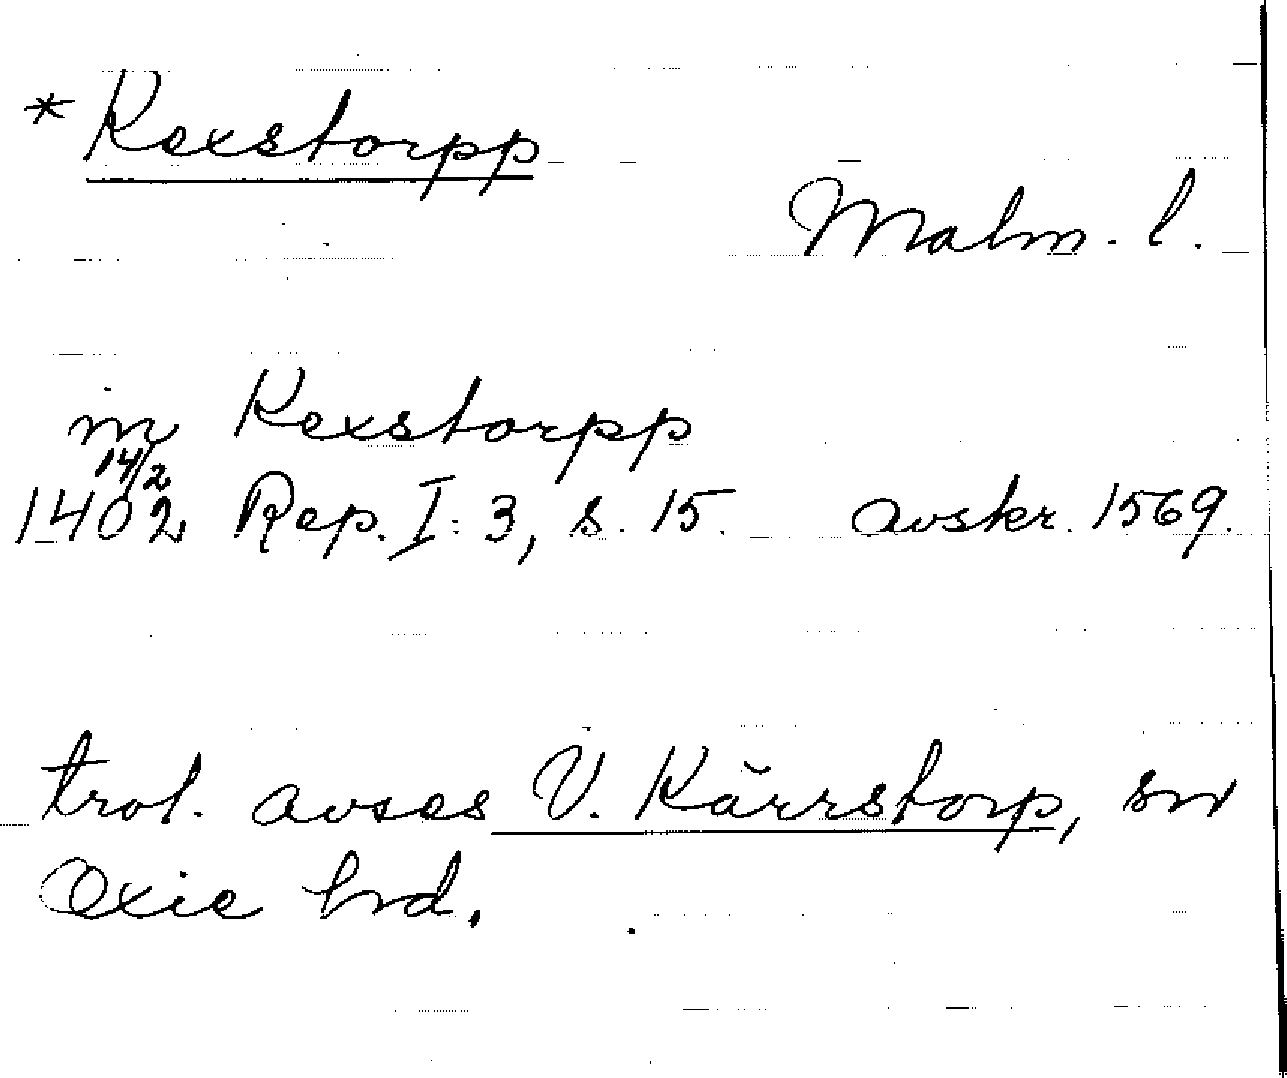 * Kexstorpp
Malm. l.
in Kexstorpp
14/2
1402 Rep. I: 3, s. 15. avskr. 1569.
trol. avses V. Kärrstorp, sn
Oxie hrd.